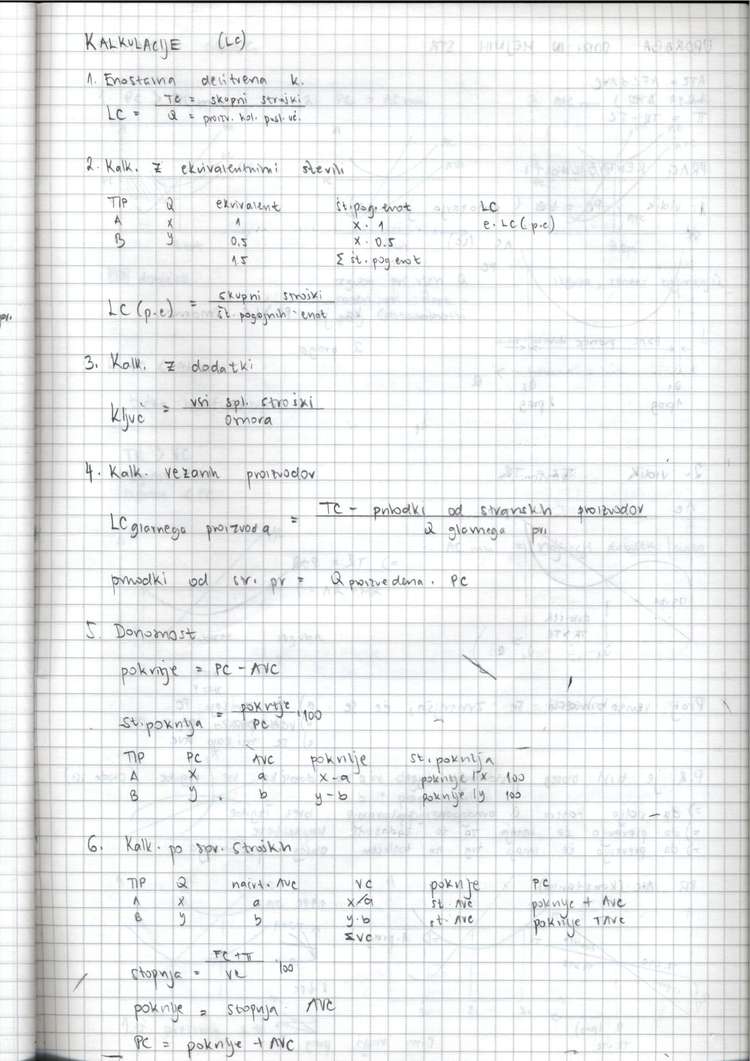 KALKULACIJE (LC)
1. Enostavna delitvena k.
LC = TC = skupni stroški
Q = proizv. kol. posl. uč.
2. Kalk. z ekvivalentnimi števili
TIP Q ekvivalent št. pog. enot LC
A x 1 x · 1 e. LC (p.e)
B y 0,5 x · 0.5
1,5 Σ št. pog enot
LC (p.e) = skupni stroški
št. pogojnih enot
3. Kalk. z dodatki
Ključ = vsi spl. stroški
osnova
4. Kalk. vezanih proizvodov
LC glavnega proizvoda = TC - prihodki od stranskih proizvodov
Q glavnega pri
prihodki od str. pr = Q proizvedena · PC
5. Donosnost
pokritje = PC - AVC
st. pokritja = pokritje · 100
PC
TIP PC AVC pokritje st. pokritja
A x a x-a pokritje /x 100
B y. b y-b pokritje /y 100
6. Kalk. po spr. stroških
TIP Q načrt. AVC VC pokritje PC
A x a x/a st. AVC pokritje + AVC
B y b y·b st. AVC pokritje + AVC
ΣVC
stopnja = FC + π 100
VC
pokritje = stopnja · AVC
PC = pokritje + AVC